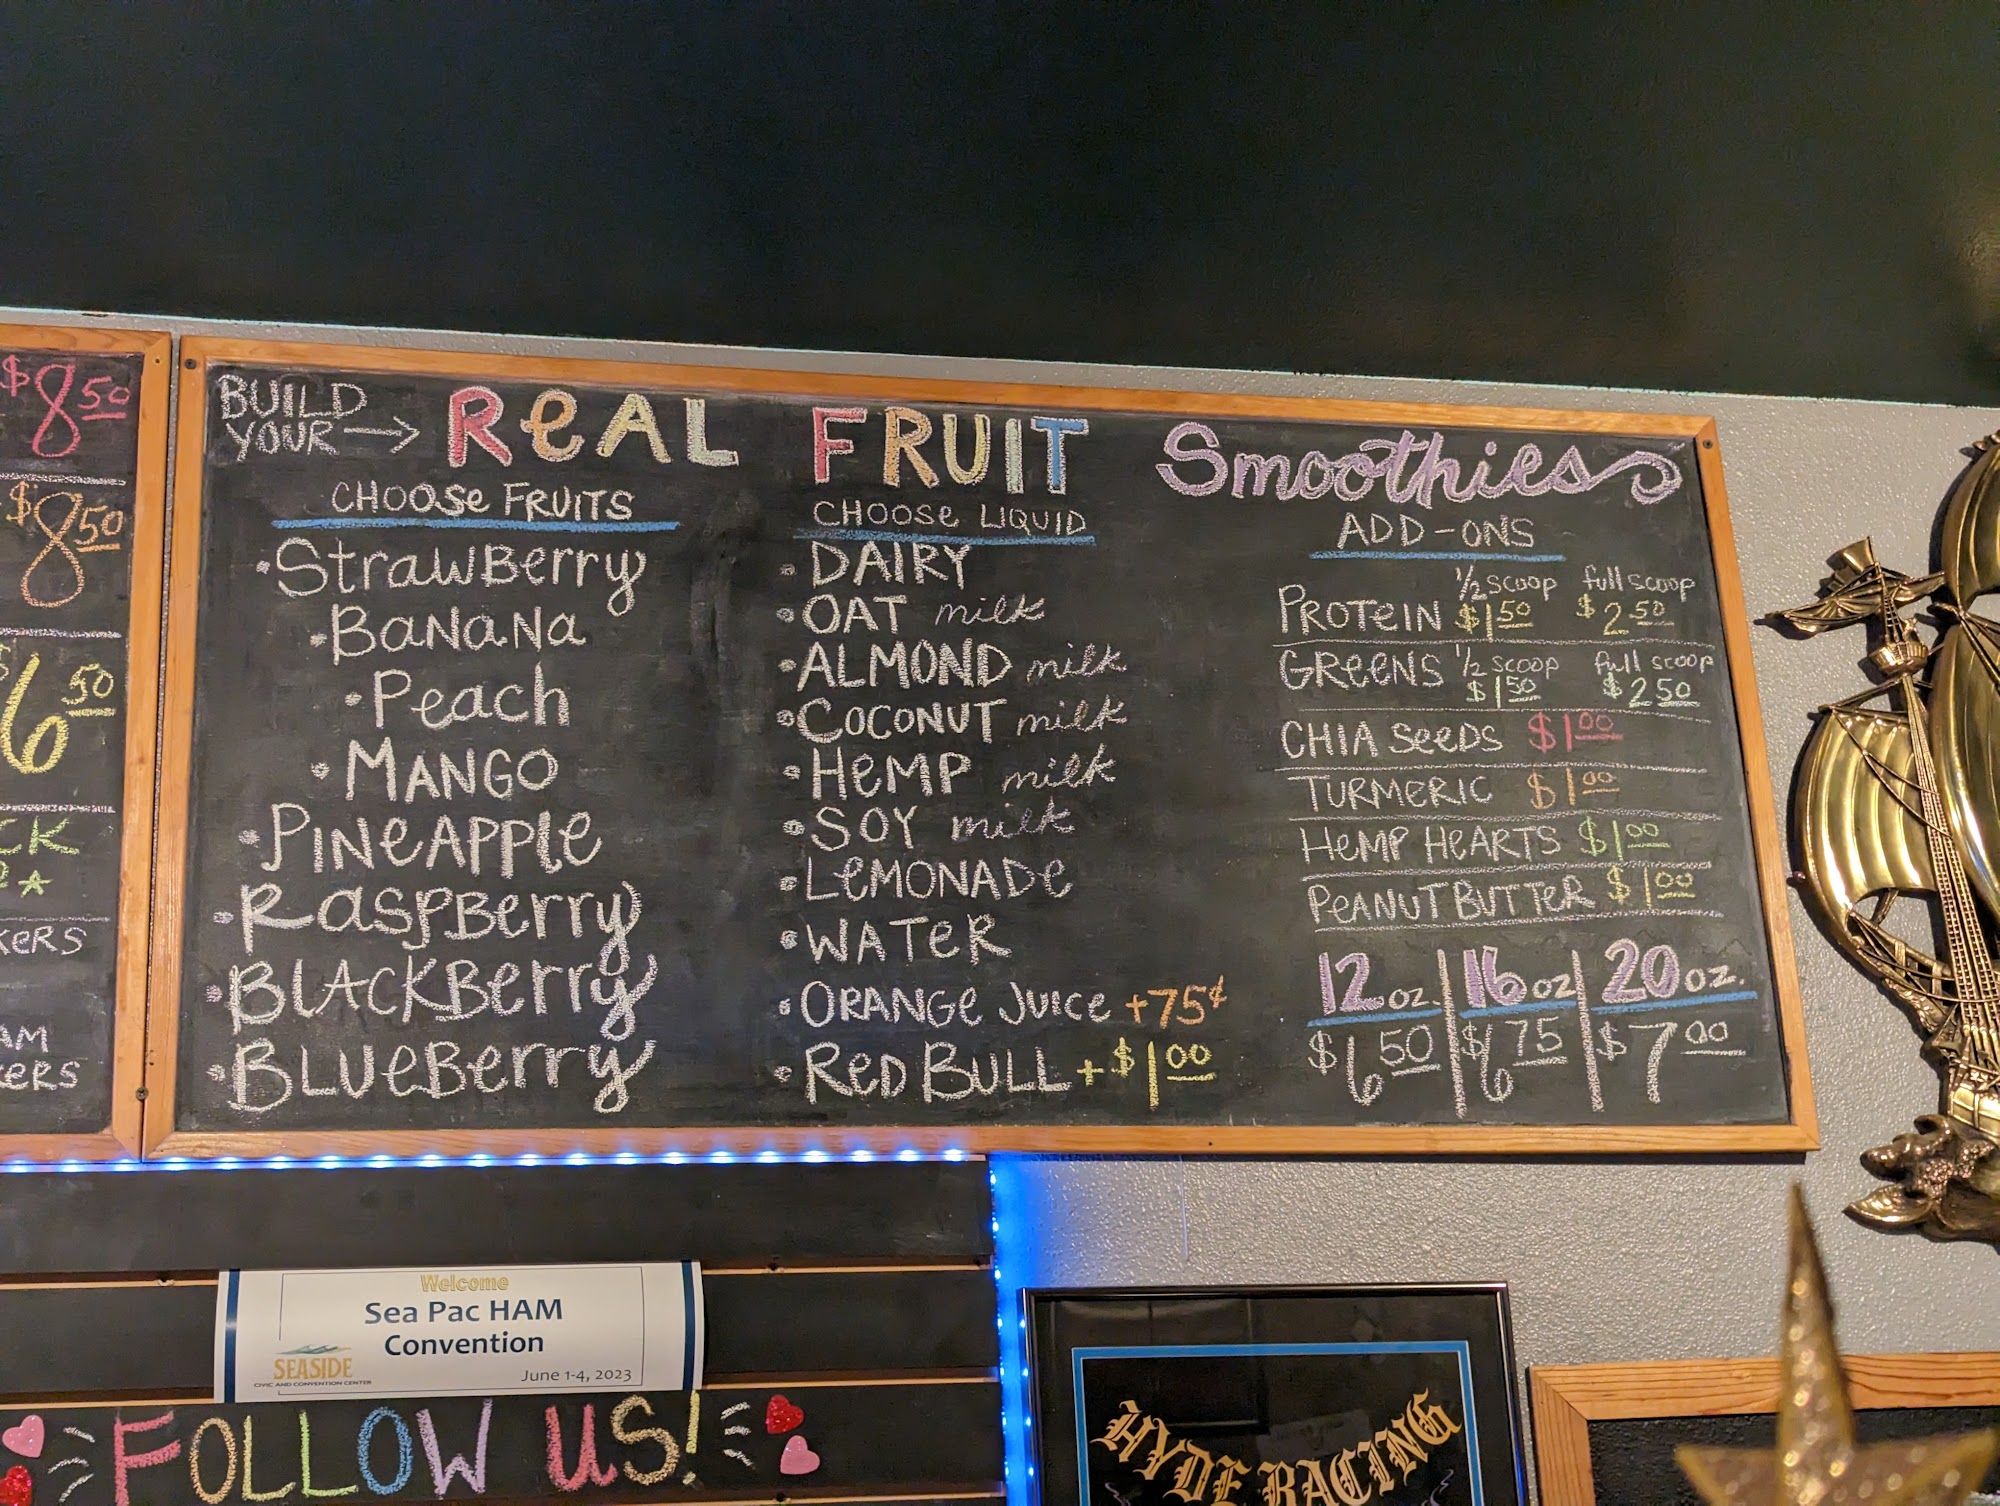 $8.50
$8.50
$6.50
CK
KERS
AM
KERS
BUILD YOUR → REAL FRUIT Smoothies
CHOOSE FRUITS
• Strawberry
• BANANA
• Peach
• MANGO
• PINEAPPLE
• Raspberry
• BLACKBerry
• BLUEBerry
CHOOSE LIQUID
• DAIRY
• OAT milk
• ALMOND milk
• COCONUT milk
• HEMP milk
• SOY milk
• LEMONADE
• WATER
• ORANGE JUICE +75¢
• RED BULL +$1.00
ADD-ONS
PROTEIN 1/2 scoop $1.50 full scoop $2.50
GREENS 1/2 scoop $1.50 full scoop $2.50
CHIA SEEDS $1.00
TURMERIC $1.00
HEMP HEARTS $1.00
PEANUT BUTTER $1.00
12 oz. | 16 oz | 20 oz.
$6.50 | $6.75 | $7.00
Welcome
Sea Pac HAM
Convention
SEASIDE
CIVIC AND CONVENTION CENTER
June 1-4, 2023
FOLLOW US!
HYDE RACING